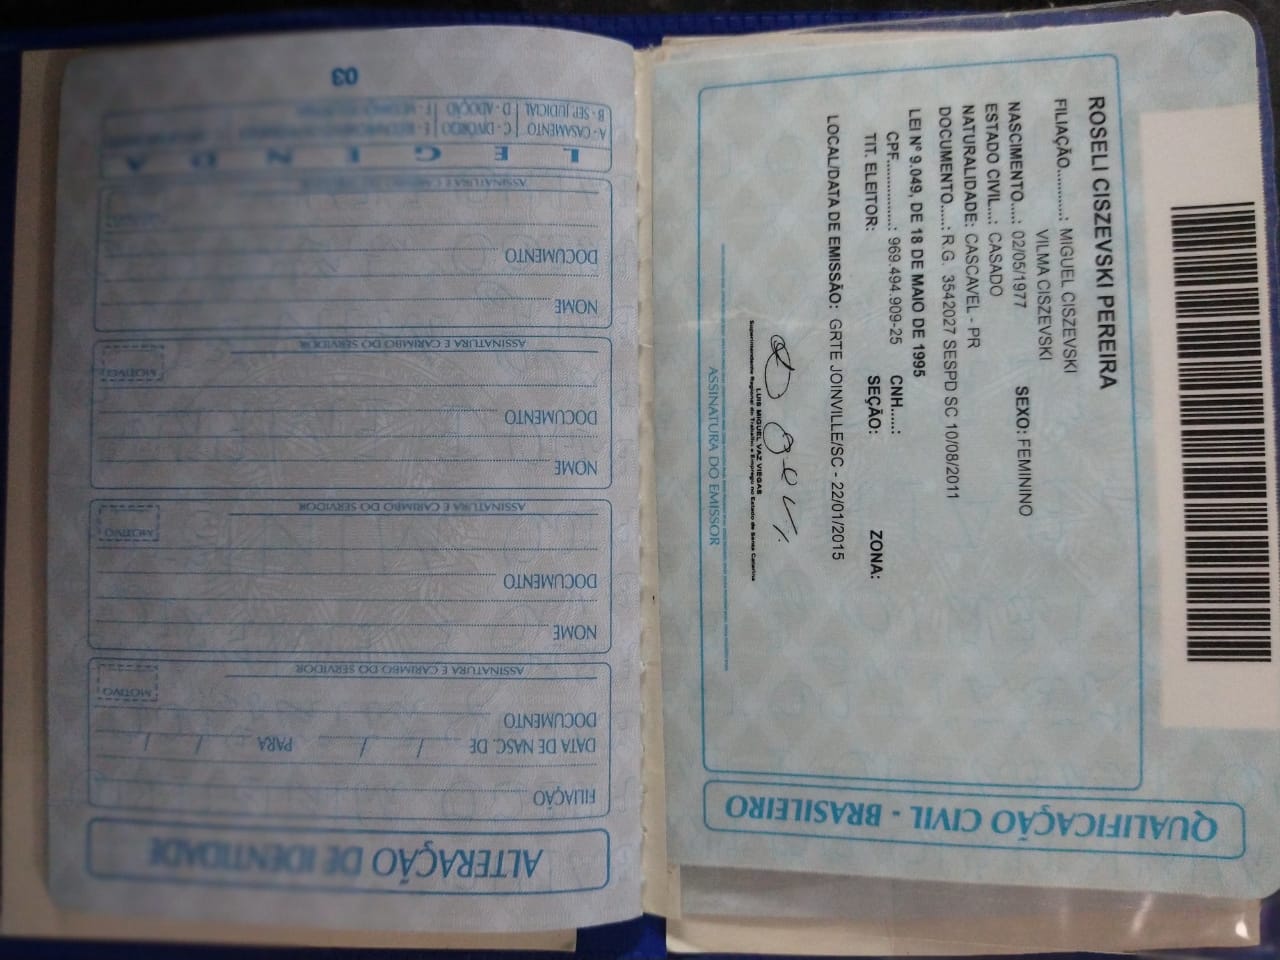 QUALIFICAÇÃO CIVIL - BRASILEIRO
ROSELI CISZEVSKI PEREIRA
FILIAÇÃO............: MIGUEL CISZEVSKI
VILMA CISZEVSKI
NASCIMENTO....: 02/05/1977 SEXO: FEMININO
ESTADO CIVIL...: CASADO
NATURALIDADE: CASCAVEL - PR
DOCUMENTO.....: R.G. 3542027 SESPD SC 10/08/2011
LEI Nº 9.049, DE 18 DE MAIO DE 1995
CPF..................: 969.494.909-25 CNH.....:
TIT. ELEITOR: SEÇÃO: ZONA:
LOCAL/DATA DE EMISSÃO: GRTE JOINVILLE/SC - 22/01/2015
LUIS MIGUEL VAZ VIEGAS
Superintendente Regional do Trabalho e Emprego no Estado de Santa Catarina
ASSINATURA DO EMISSOR
ALTERAÇÃO DE IDENTIDADE
FILIAÇÃO
DATA DE NASC. DE / / PARA / /
DOCUMENTO
MOTIVO
ASSINATURA E CARIMBO DO SERVIDOR
NOME
DOCUMENTO
MOTIVO
ASSINATURA E CARIMBO DO SERVIDOR
NOME
DOCUMENTO
MOTIVO
ASSINATURA E CARIMBO DO SERVIDOR
NOME
DOCUMENTO
ASSINATURA E CARIMBO DO SERVIDOR
LEGENDA
A - CASAMENTO C - DIVÓRCIO
B - SEP. JUDICIAL D - ADOÇÃO
03